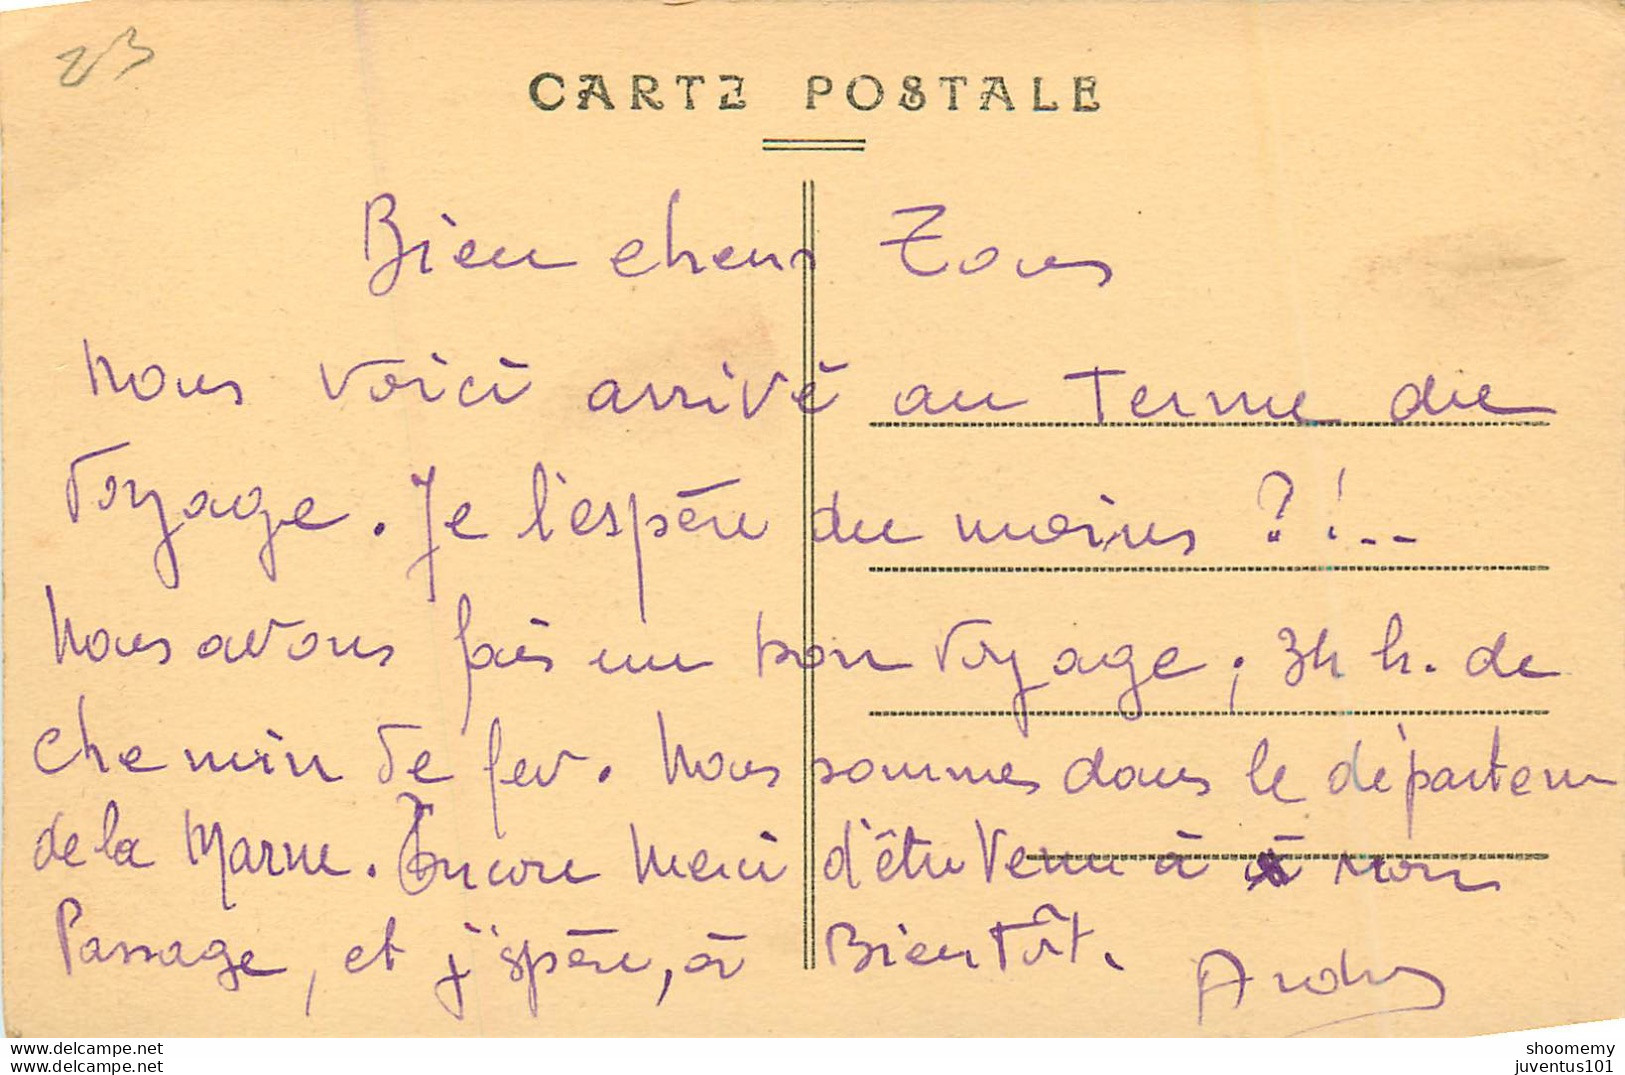 23
CARTE POSTALE
Bien chers Tous
Nous voici arrivé au Terme du
voyage. Je l'espère du moins ?!..
Nous avons fais un bon voyage, 34 h. de
chemin de fer. Nous sommes dans le départem
de la Marne. Encore Merci d'être Venu à à mon
Passage, et j'spère, à Bientôt.
www.delcampe.net
shoomemy
juventus101